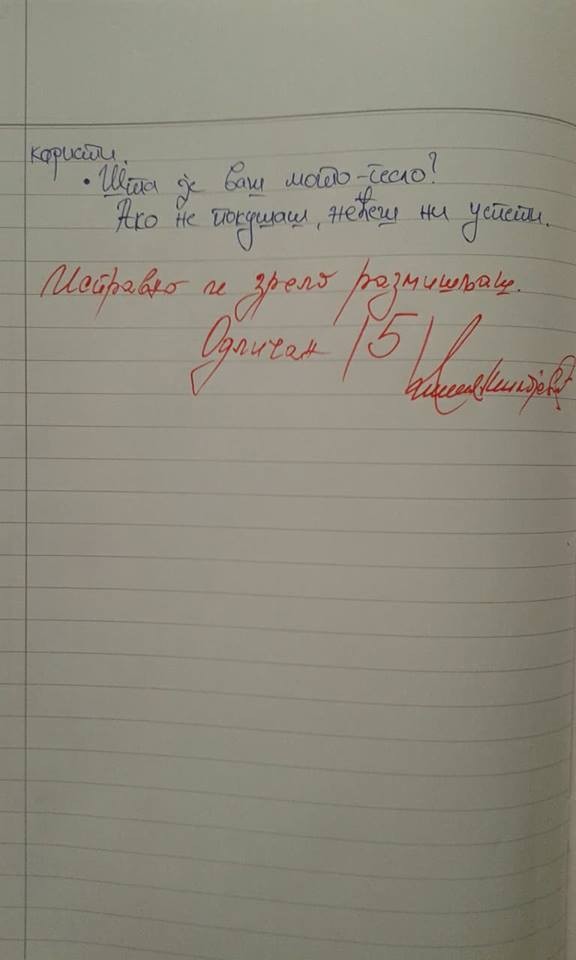 користи.
• Шта је ваш мото-гесло?
Ако не покушаш, нећеш ни успети.
Исправно и зрело размишљаш.
Одличан /5/